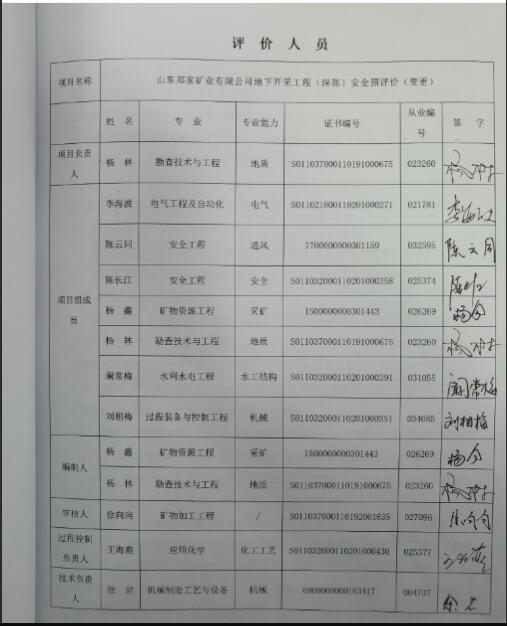 评价人员
项目名称 山东郑家矿业有限公司地下开采工程（深部）安全预评价（变更）
姓名 专业 专业能力 证书编号 从业编号 签字
项目负责人 杨林 勘查技术与工程 地质 S011037000110191000675 023260
项目组成员
李海波 电气工程及自动化 电气 S011021000110201000271 021781 李海波
陈云同 安全工程 通风 1700000000301159 032595 陈云同
陈长江 安全工程 安全 S011032000110201000358 025374
杨鑫 矿物资源工程 采矿 1500000000301443 026269
杨林 勘查技术与工程 地质 S011037000110191000675 023260
阚常梅 水利水电工程 水工结构 S011032000110201000391 031055 阚常梅
刘相梅 过程装备与控制工程 机械 S011032000110201000351 034085 刘相梅
编制人
杨鑫 矿物资源工程 采矿 1500000000301443 026269
杨林 勘查技术与工程 地质 S011037000110191000675 023260
审核人 徐向向 矿物加工工程 / S011037000110192001635 027096 徐向向
过程控制负责人 王海燕 应用化学 化工工艺 S011032000110201000430 025377
技术负责人 徐岩 机械制造工艺与设备 机械 0800000000103417 004737